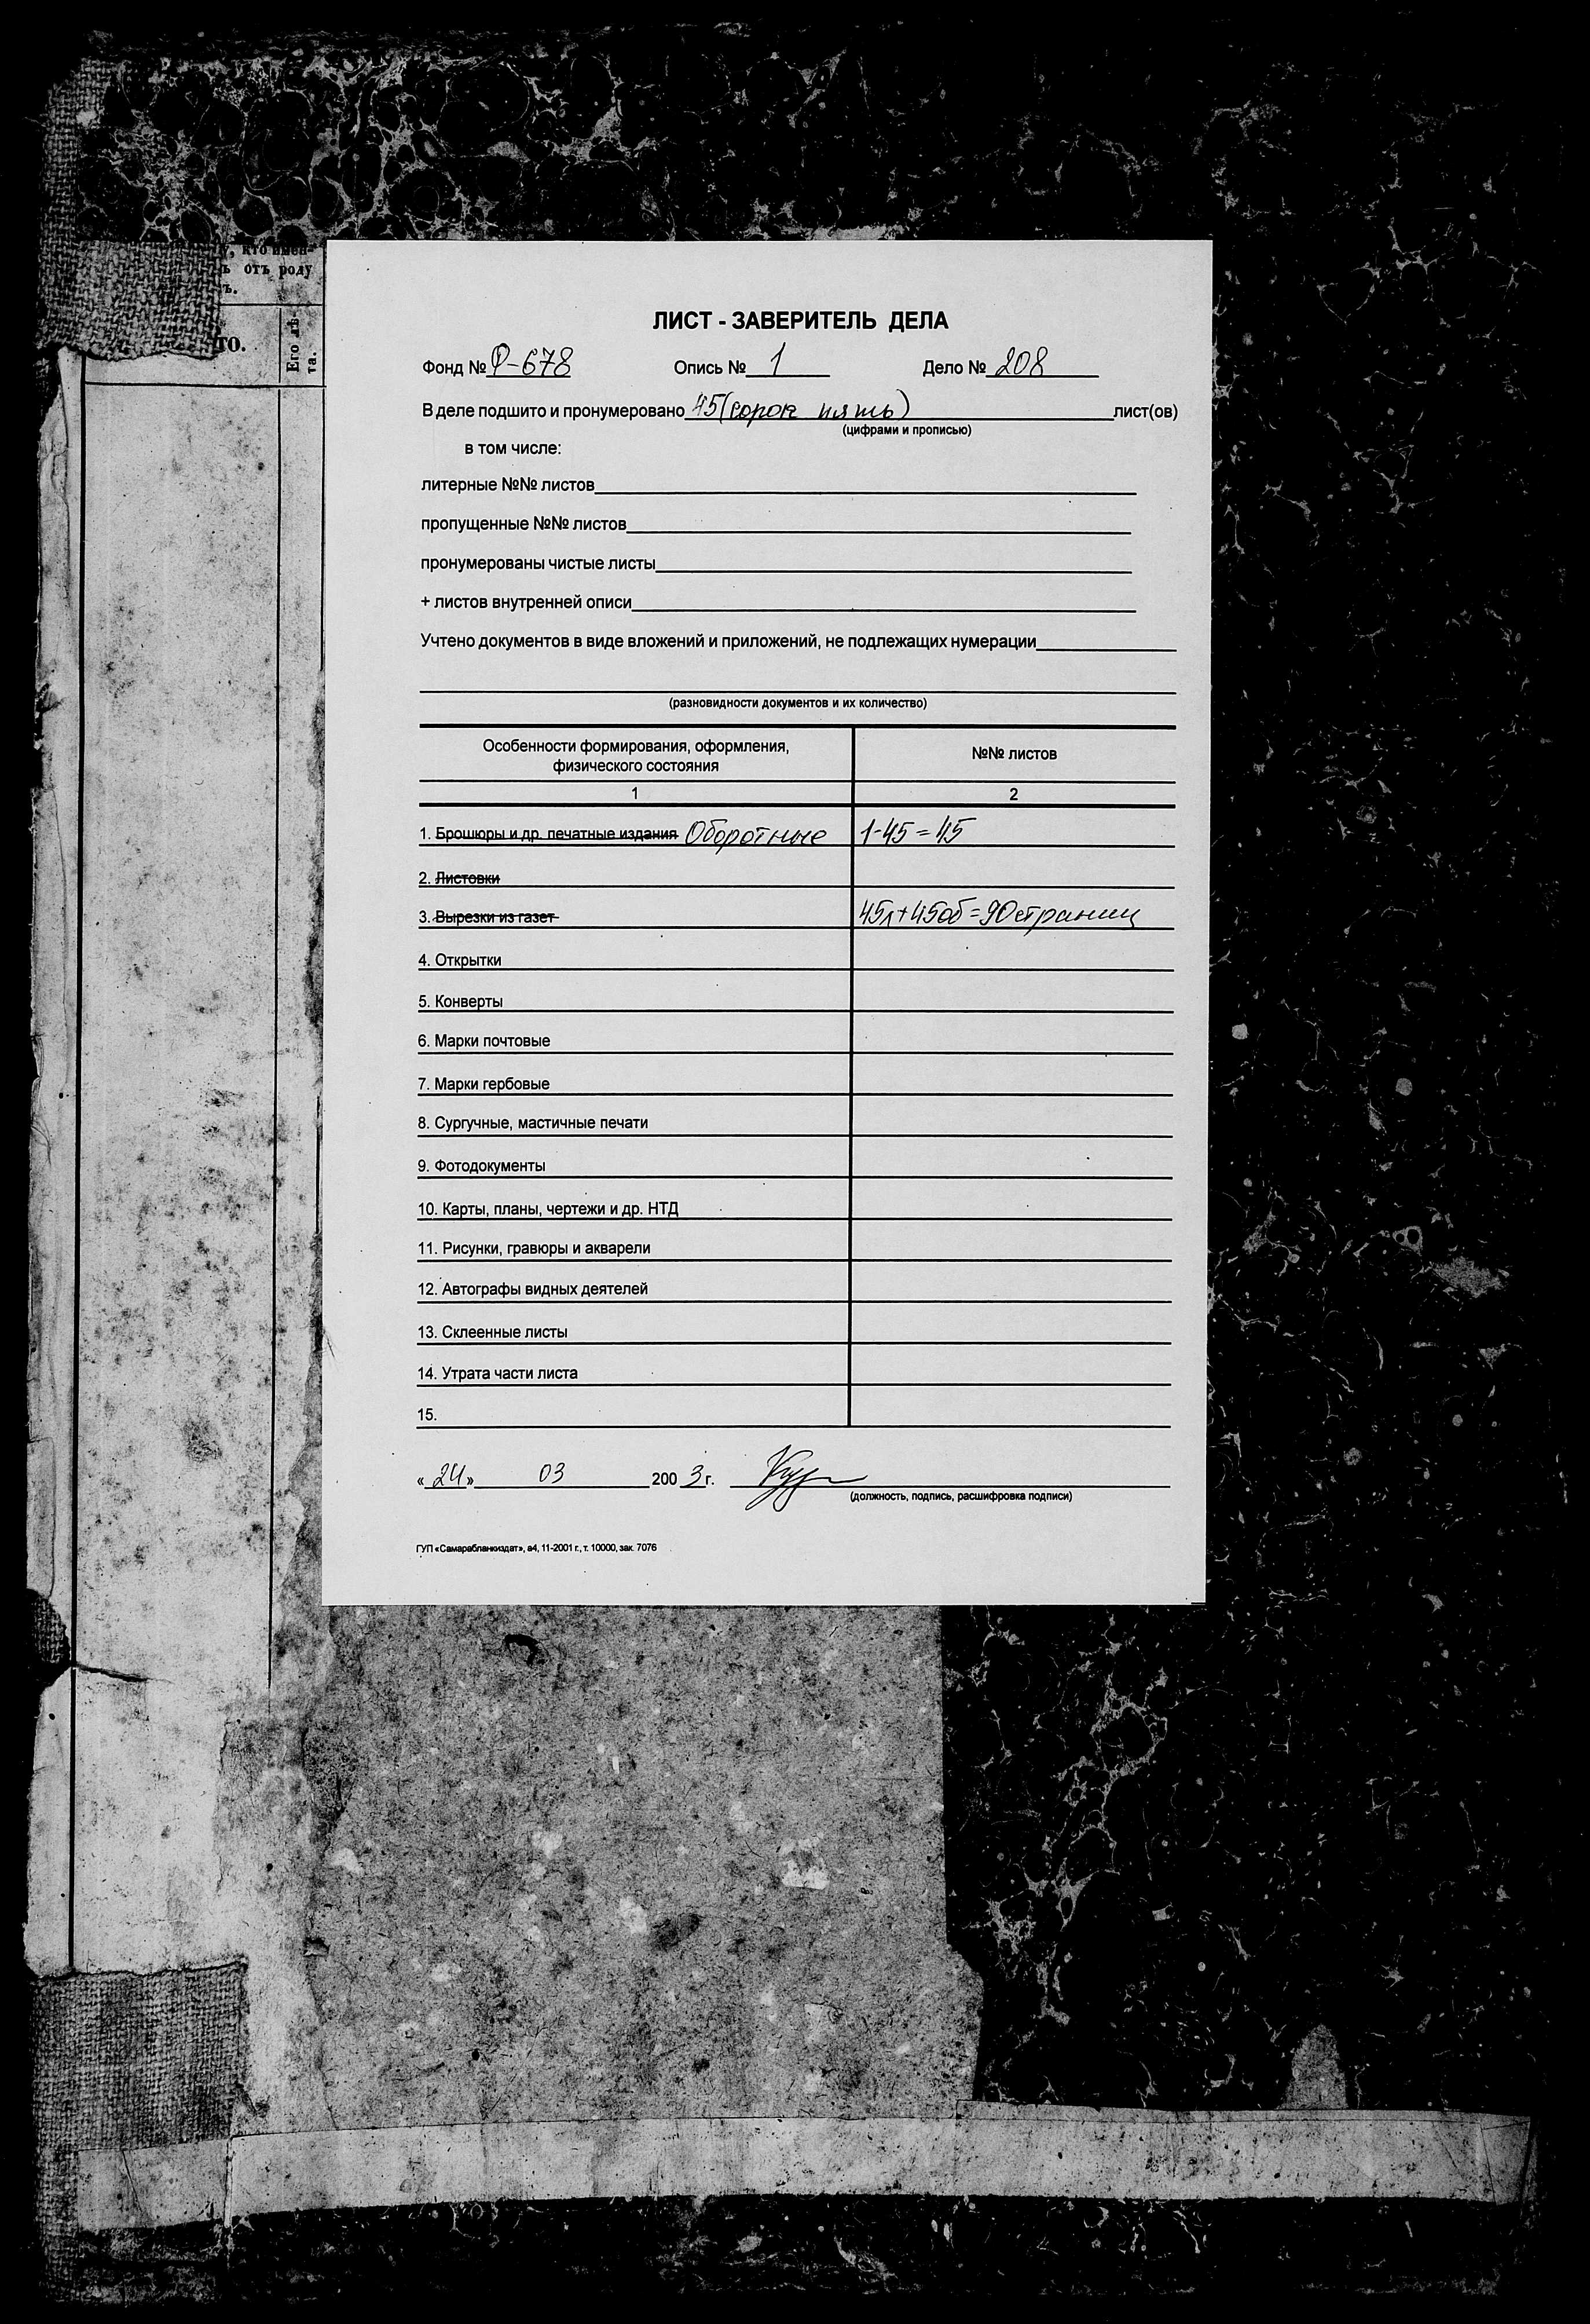 у, кто имен-
ъ отъ роду
ъ.
ТО.
Его лѣ-
та.
ЛИСТ - ЗАВЕРИТЕЛЬ ДЕЛА
Фонд № Ф-678 Опись № 1 Дело № 208
В деле подшито и пронумеровано 45 (сорок пять) лист(ов)
(цифрами и прописью)
в том числе:
литерные №№ листов
пропущенные №№ листов
пронумерованы чистые листы
+ листов внутренней описи
Учтено документов в виде вложений и приложений, не подлежащих нумерации
(разновидности документов и их количество)
Особенности формирования, оформления, №№ листов
физического состояния
1 2
1. Брошюры и др. печатные издания Оборотные 1-45 = 45
2. Листовки
3. Вырезки из газет 45л+45об=90страниц
4. Открытки
5. Конверты
6. Марки почтовые
7. Марки гербовые
8. Сургучные, мастичные печати
9. Фотодокументы
10. Карты, планы, чертежи и др. НТД
11. Рисунки, гравюры и акварели
12. Автографы видных деятелей
13. Склеенные листы
14. Утрата части листа
15.
« 24 » 03 200 3 г.
(должность, подпись, расшифровка подписи)
ГУП «Самарабланкиздат», а4, 11-2001 г., т. 10000, зак. 7076